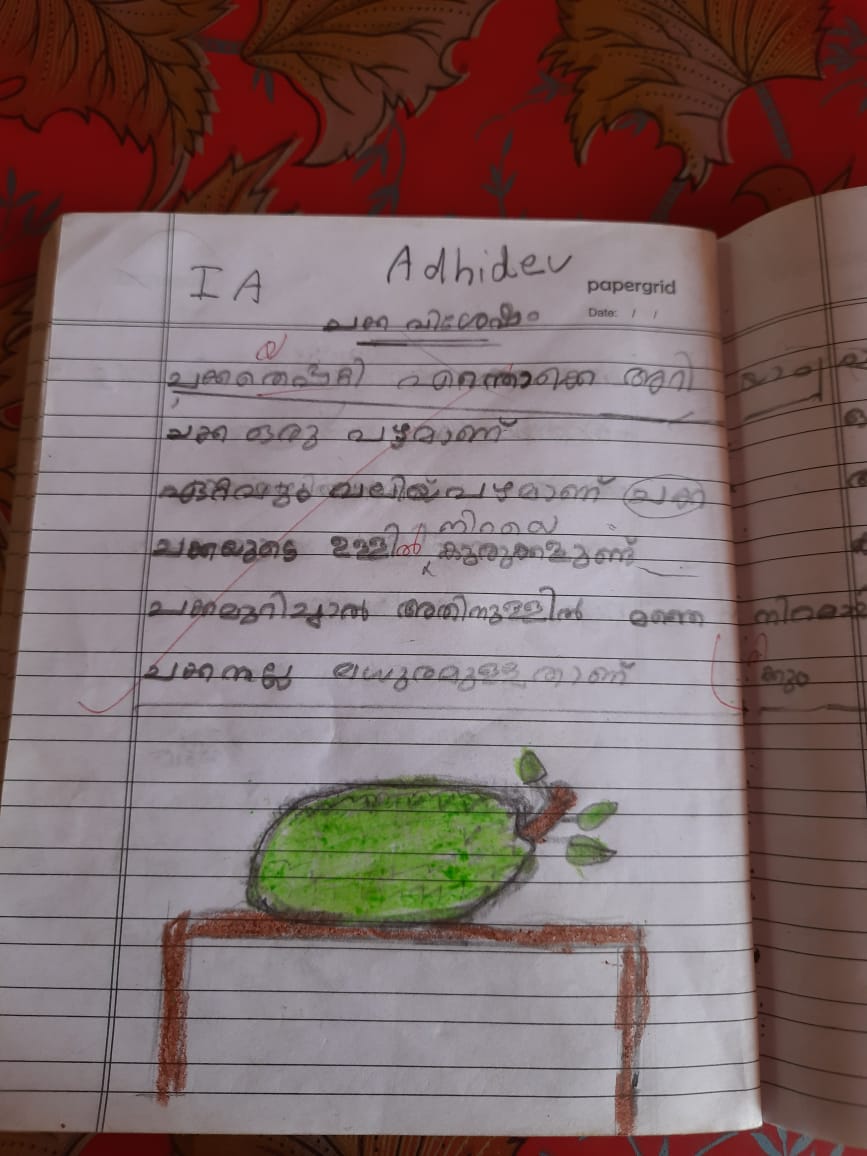 I A Adhidev
papergrid
Date: / /
ചക്ക വിശേഷം
ചക്കയെപ്പറ്റി എന്തൊക്കെ അറി
ചക്ക ഒരു പഴമാണ്
ഏറ്റവും വലിയ പഴമാണ് ചക്ക
നിറയെ
ചക്കയുടെ ഉള്ളിൽ കുരുക്കളുണ്ട്
ചക്കമുറിച്ചാൽ അതിനുള്ളിൽ മഞ്ഞ
ചക്കനല്ല മധുരമുള്ളതാണ്